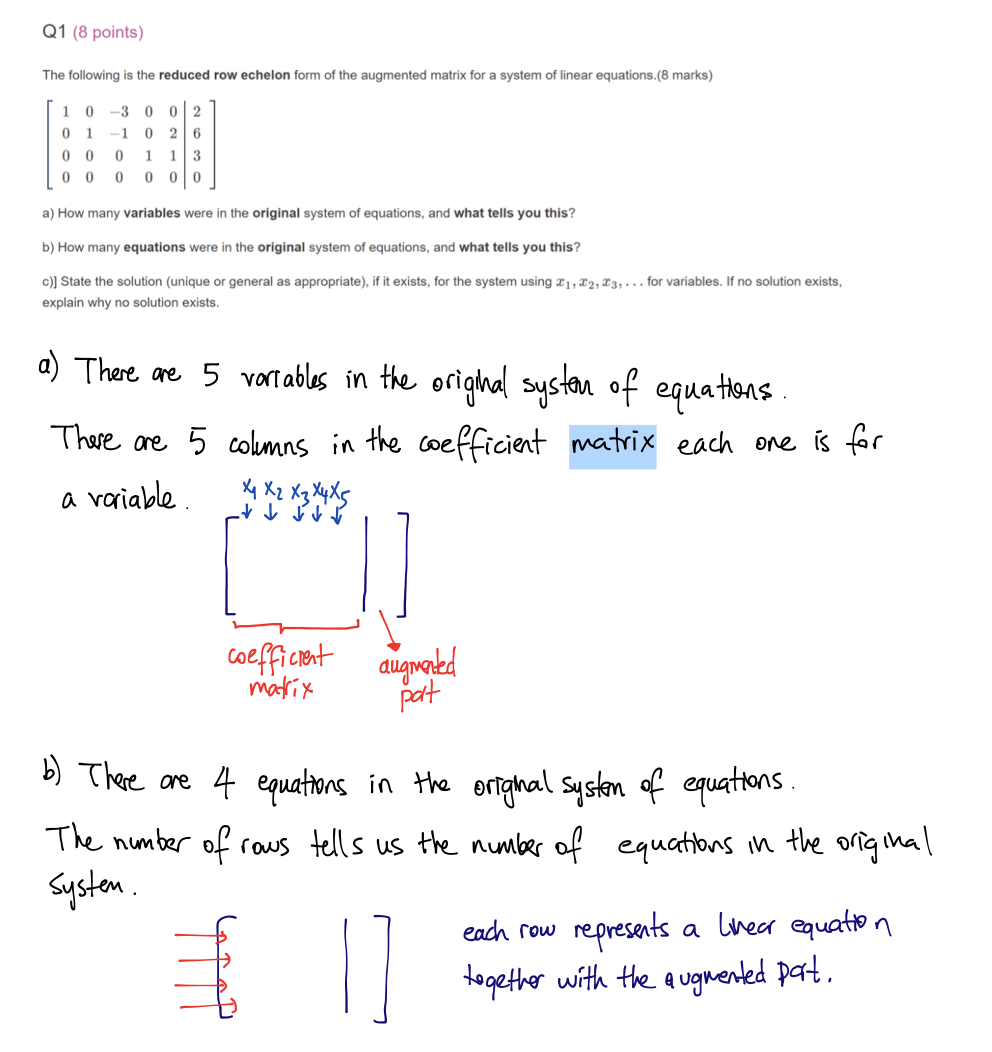 Q1 (8 points)
The following is the reduced row echelon form of the augmented matrix for a system of linear equations.(8 marks)
1 0 −3 0 0 | 2
0 1 −1 0 2 | 6
0 0 0 1 1 | 3
0 0 0 0 0 | 0
a) How many variables were in the original system of equations, and what tells you this?
b) How many equations were in the original system of equations, and what tells you this?
c)] State the solution (unique or general as appropriate), if it exists, for the system using x₁, x₂, x₃, . . . for variables. If no solution exists,
explain why no solution exists.
a) There are 5 variables in the original system of equations.
There are 5 columns in the coefficient matrix each one is for
a variable.
x₁ x₂ x₃ x₄ x₅
coefficient
matrix
augmented
part
b) There are 4 equations in the original system of equations.
The number of rows tells us the number of equations in the original
system.
each row represents a linear equation
together with the augmented part.